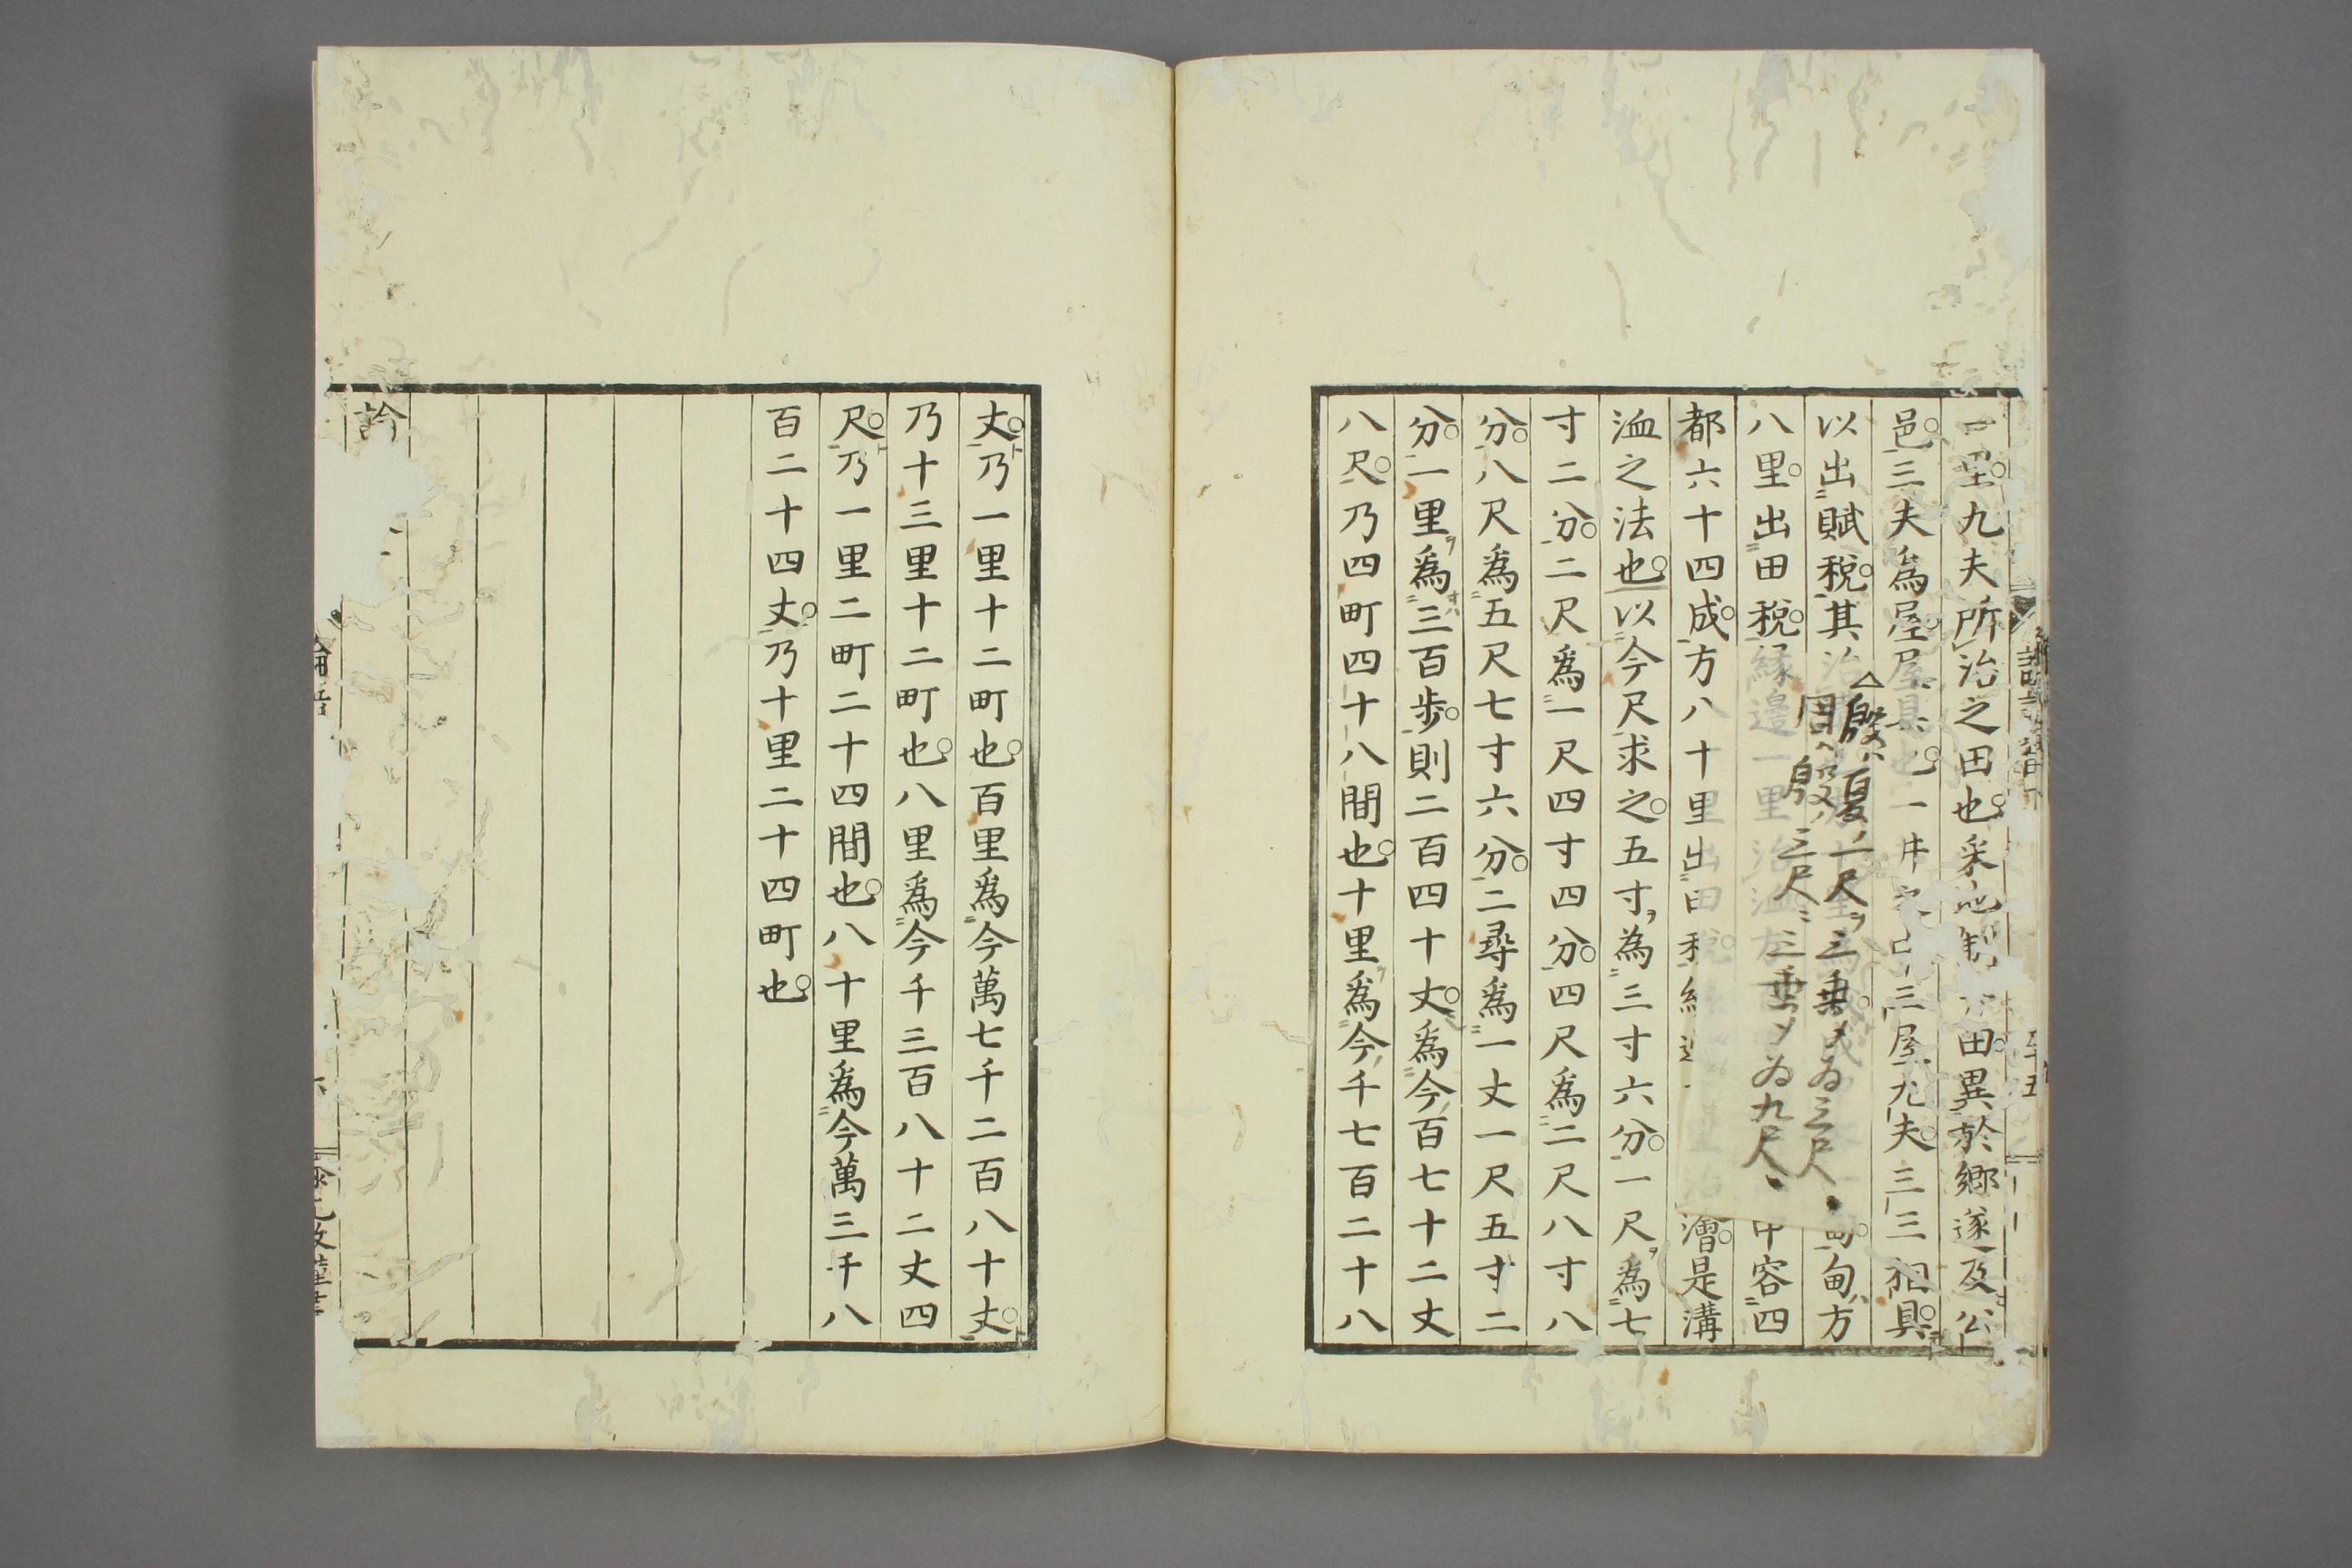 一里九夫所治之田也采地制田異於鄉遂及公
邑三夫爲屋屋具也一井之三屋九夫三三相具
以出賦稅其治甸甸方
八里出田稅緣邊一里治洫中容四
都六十四成方八十里出田稅緣邊澮是溝
殷夏ノ一尺ヲ三乗〆ゐ三尺
周ハ殷ノ三尺ニ三乗〆ゐ九尺
洫之法也以今尺求之五寸爲三寸六分一尺爲七
寸二分二尺爲一尺四寸四分四尺爲二尺八寸八
分八尺爲五尺七寸六分二尋爲一丈一尺五寸二
分一里爲三百歩則二百四十丈爲今百七十二丈
八尺乃四町四十八間也十里爲今千七百二十八
丈乃一里十二町也百里爲今萬七千二百八十丈
乃十三里十二町也八里爲今千三百八十二丈四
尺乃一里二町二十四間也八十里爲今萬三千八
百二十四丈乃十里二十四町也